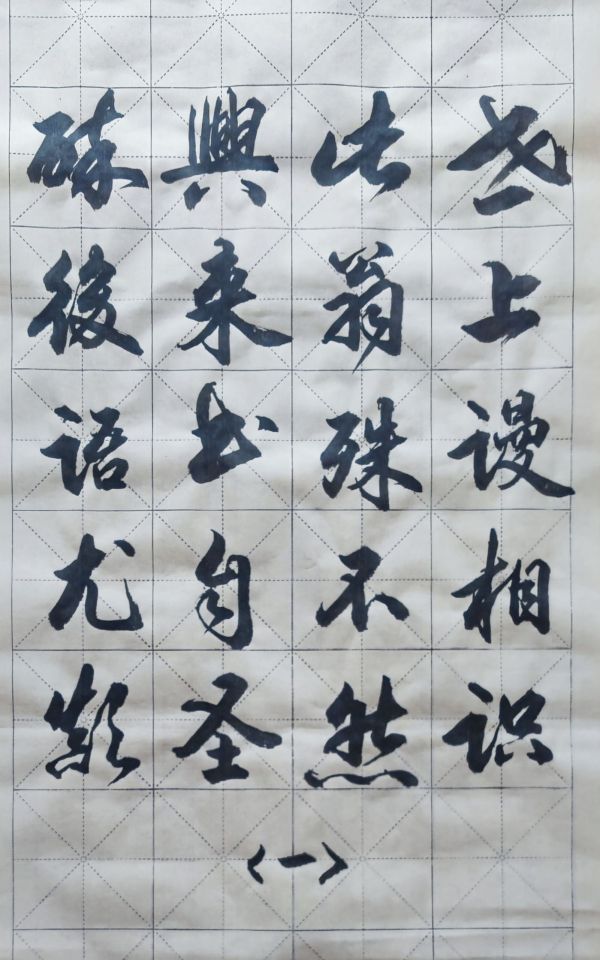 世上谩相识
此翁殊不然
興来书自圣
醉後语尤颠
<一>